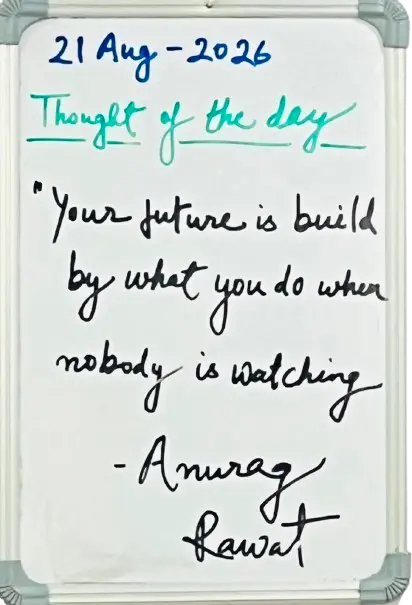 21 Aug - 2026
Thought of the day
"Your future is build
by what you do when
nobody is watching
- Anurag
Rawat